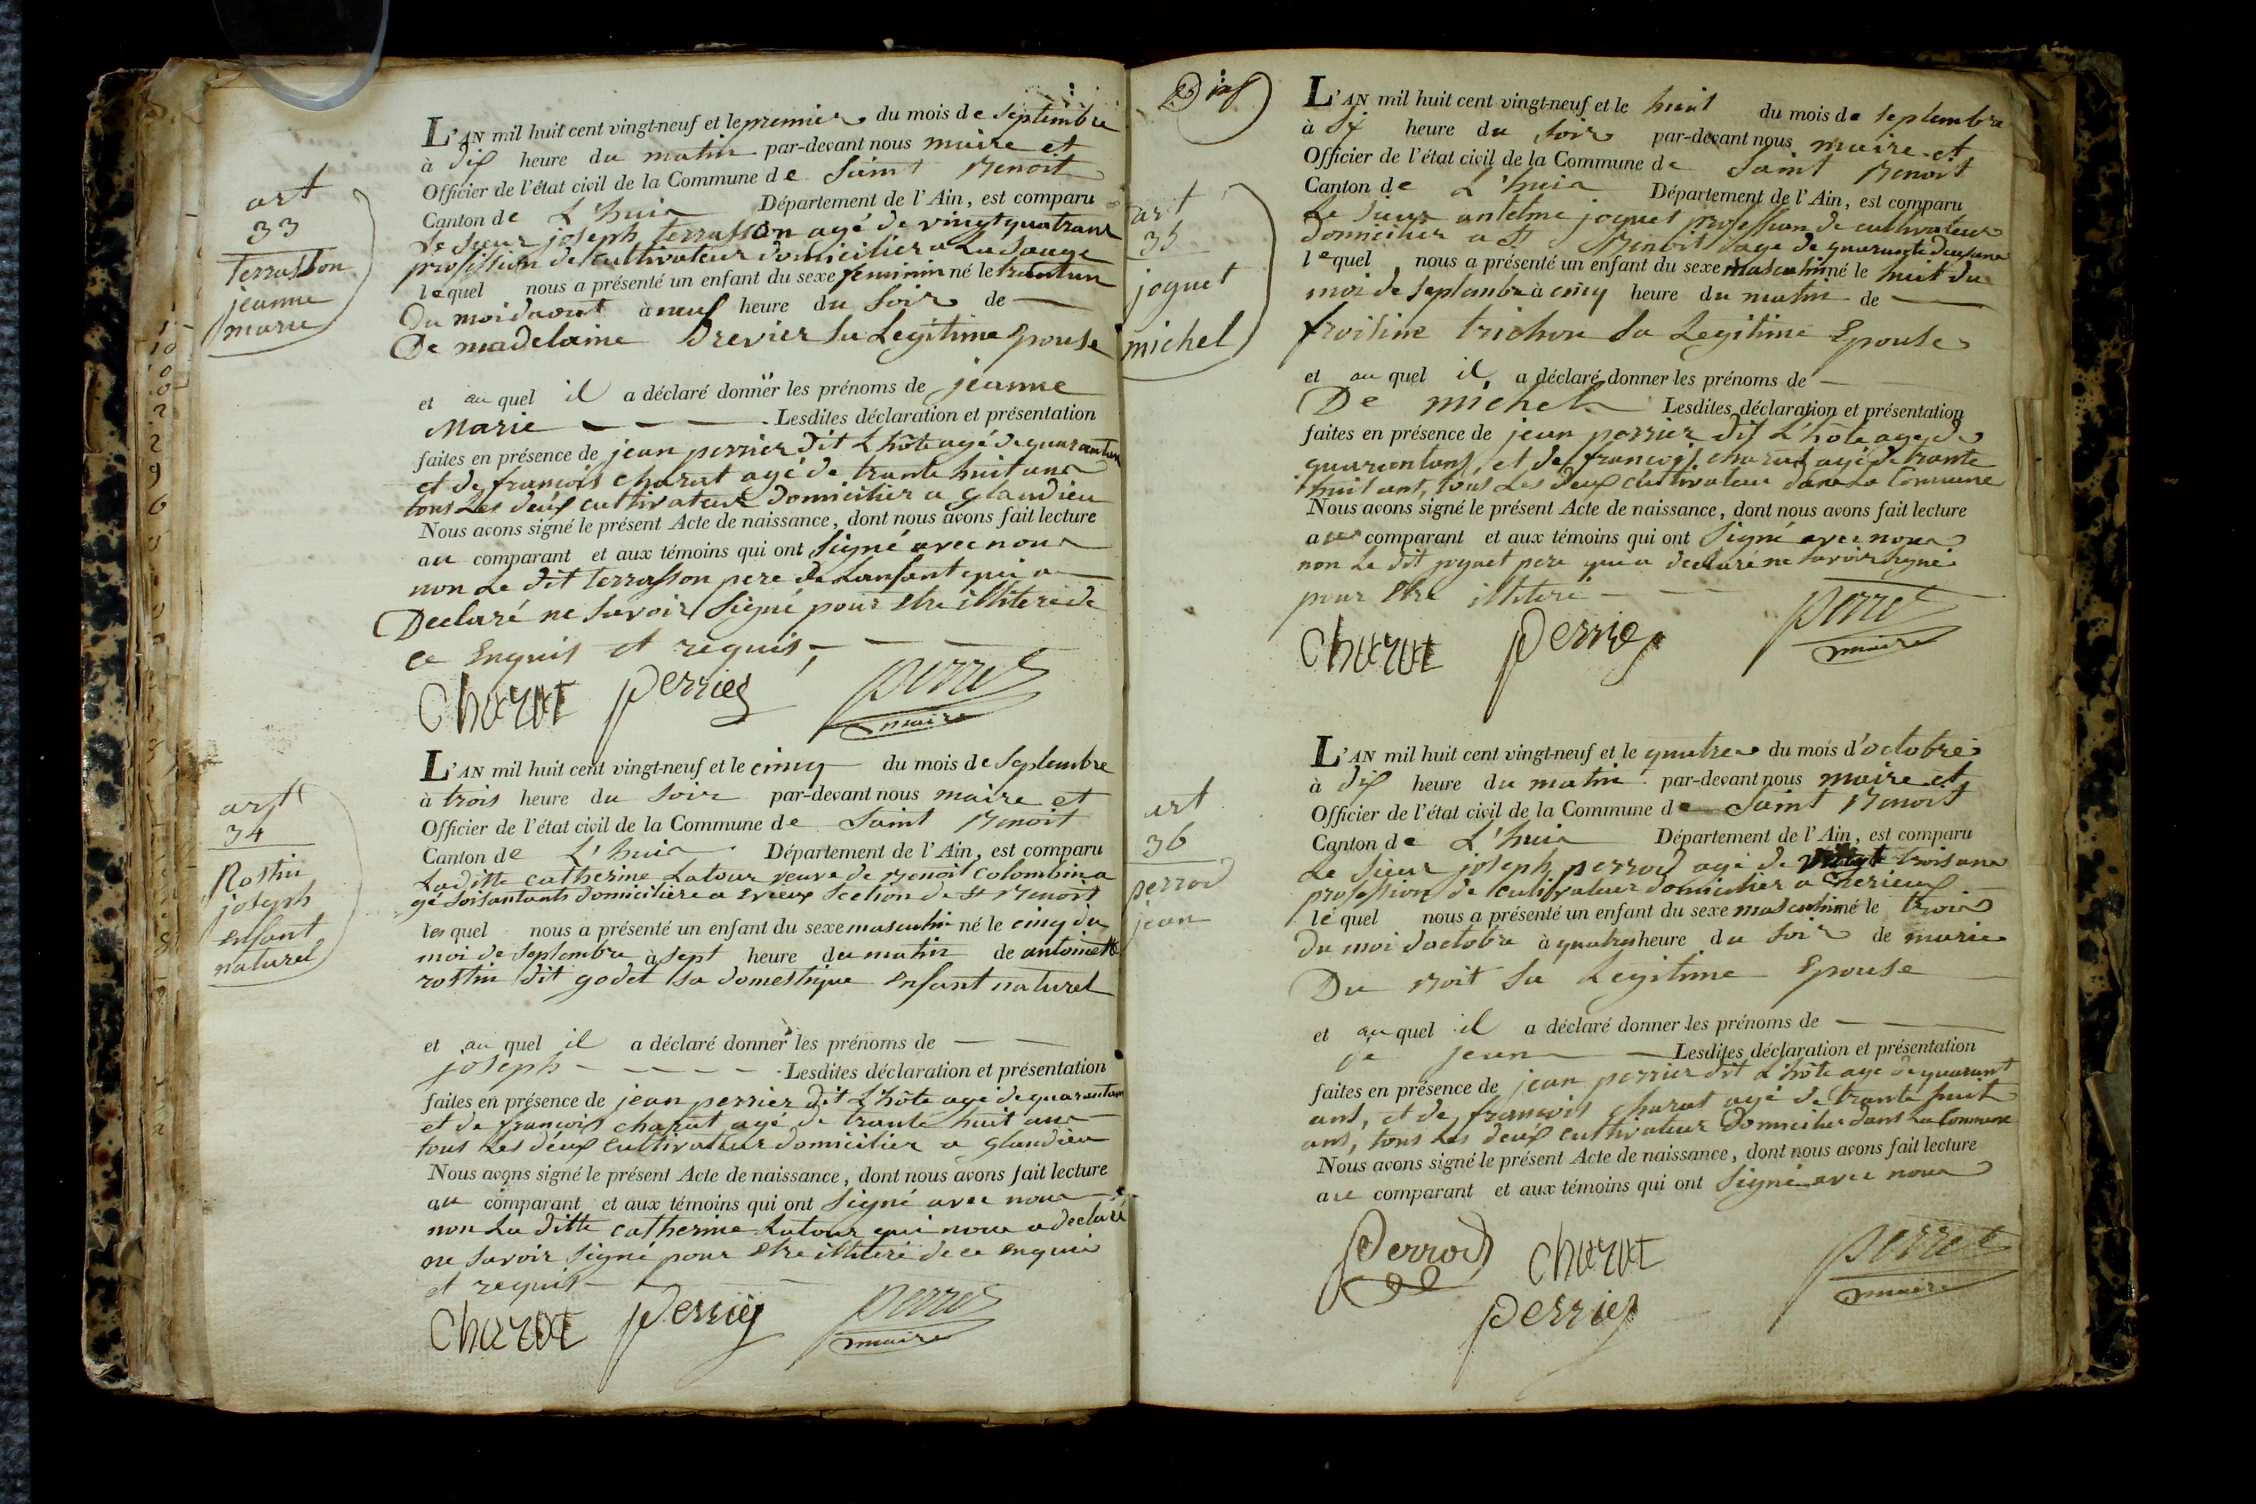 art
33
terrasson
jeanne
marie
L'AN mil huit cent vingt-neuf et le premier du mois de septembre
à dix heure du matin par-devant nous maire et
Officier de l'état civil de la Commune de Saint Benoit
Canton de L'huis Département de l'Ain, est comparu
Le sieur joseph terrasson agé de vingt quatrans
profission de cultivateur domicilier a La sauge
lequel nous a présenté un enfant du sexe feminin né le trantun
Du moi daout à neuf heure du soir de
De madelaine Brevier sa Legitime Epouse
et au quel il a déclaré donner les prénoms de jeanne
Marie Lesdites déclaration et présentation
faites en présence de jean perrier dit L'hôte agé de quarantans
et de francois charat agé de trante huit ans
tous Les deux cultivateur domicilier a glandieu
Nous avons signé le présent Acte de naissance, dont nous avons fait lecture
au comparant et aux témoins qui ont signé avec nous
non Le dit terrasson pere de Lanfant qui a
Declaré ne savoir signé pour Etre illiteré de
ce Enquis et requis
Charat perrier perret
maire
art
34
Rostin
joseph
enfant
naturel
L'AN mil huit cent vingt-neuf et le cinq du mois de septembre
à trois heure du soir par-devant nous maire et
Officier de l'état civil de la Commune de Saint Benoit
Canton de L'huis Département de l'Ain, est comparu
Laditte catherine Latour veuve de Benoit Colombin a
gé soisantants domicilière a Evieux section de St Benoit
lequel nous a présenté un enfant du sexe masculin né le cinq du
moi de septembre à sept heure du matin de antoinette
rostin dit godet sa domestique Enfant naturel
et au quel il a déclaré donner les prénoms de
joseph Lesdites déclaration et présentation
faites en présence de jean perrier dit L'hôte agé de quarantans
et de francois charat agé de tranté huit ans
tous Les deux cultivateur domicilier a glandieu
Nous avons signé le présent Acte de naissance, dont nous avons fait lecture
au comparant et aux témoins qui ont signé avec nous
non La ditte catherine Latour qui nous a declaré
ne savoir signé pour Etre illiteré de ce enquis
et requis
Charat perrier perret
maire
art
35
joguet
michel
L'AN mil huit cent vingt-neuf et le huit du mois de septembre
à six heure du soir par-devant nous maire et
Officier de l'état civil de la Commune de Saint Benoit
Canton de L'huis Département de l'Ain, est comparu
Le sieur antelme joguet profession de cultivateur
domicilier a St Benoit agé de quarante deux ans
lequel nous a présenté un enfant du sexe masculin né le huit du
moi de septembre à cinq heure du matin de
froiline trichon sa Legitime Epouse
et au quel il a déclaré donner les prénoms de
De michel Lesdites déclaration et présentation
faites en présence de jean perrier dit L'hôte agé de
quarantans, et de francois charat agé de trante
huit ant, tous Les deux cultivateur dans La Comune
Nous avons signé le présent Acte de naissance, dont nous avons fait lecture
au comparant et aux témoins qui ont signé avec nous
non Le dit joguet pere qui a declaré ne savoir signé
pour Etre illiteré
Charat perrier perret
maire
art
36
perrod
jean
L'AN mil huit cent vingt-neuf et le quatre du mois d'octobre
à dix heure du matin par-devant nous maire et
Officier de l'état civil de la Commune de Saint Benoit
Canton de L'huis Département de l'Ain, est comparu
Le sieur joseph perrod agé de vingt trois ans
profession de cultivateur domicilier a
lé quel nous a présenté un enfant du sexe masculin né le trois
du moi doctobre à quatre heure du soir de marie
Du noit sa Legitime Epouse
et au quel il a déclaré donner les prénoms de
jean Lesdites déclaration et présentation
faites en présence de jean perrier dit L'hôte agé de quarant
ans, et de francois charat agé de trante huit
ans, tous Les deux cultivateur Domicilier dans La Commune
Nous avons signé le présent Acte de naissance, dont nous avons fait lecture
au comparant et aux témoins qui ont signé avec nous
Perrod Charat perret
perrier maire